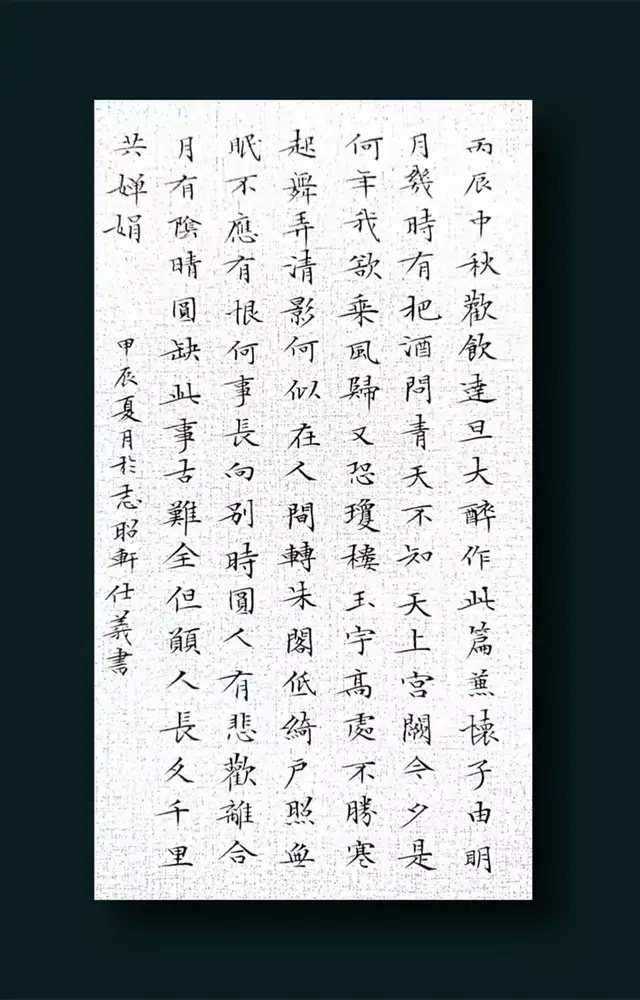 丙辰中秋歡飲達旦大醉作此篇兼懷子由明
月幾時有把酒問青天不知天上宮闕今夕是
何年我欲乘風歸又恐瓊樓玉宇高處不勝寒
起舞弄清影何似在人間轉朱閣低綺戶照無
眠不應有恨何事長向別時圓人有悲歡離合
月有陰晴圓缺此事古難全但願人長久千里
共嬋娟
甲辰夏月於志昭軒仕義書